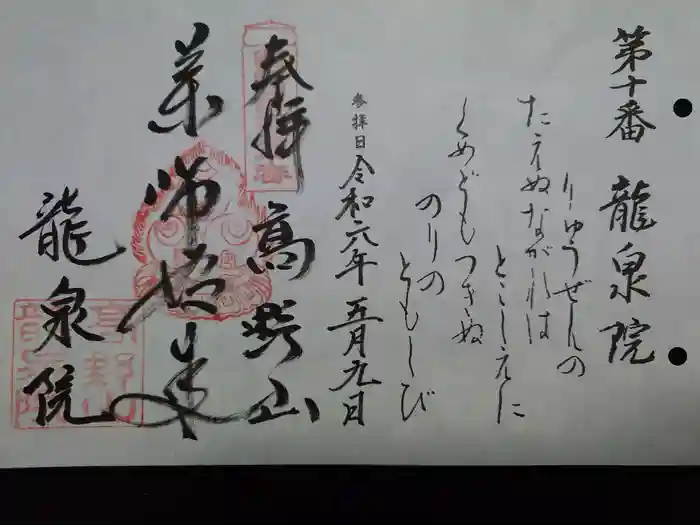 第十番 龍泉院
りゅうぜんの
たえぬながれは
とこしえに
くめどもつきぬ
のりの
ともしび
参拝日 令和六年 五月九日
奉拝 高野山
薬師如来
龍泉院